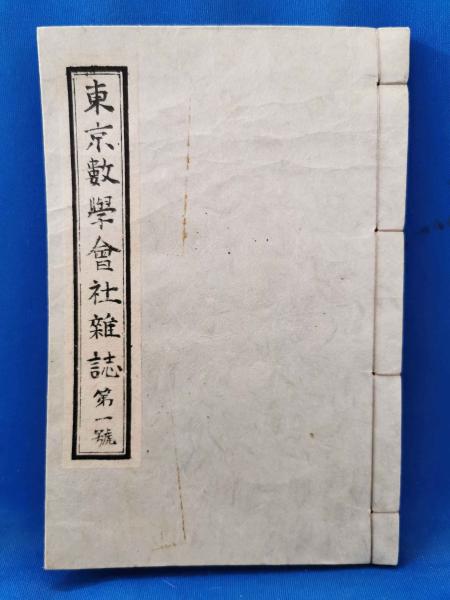 東京數學會社雜誌第一號